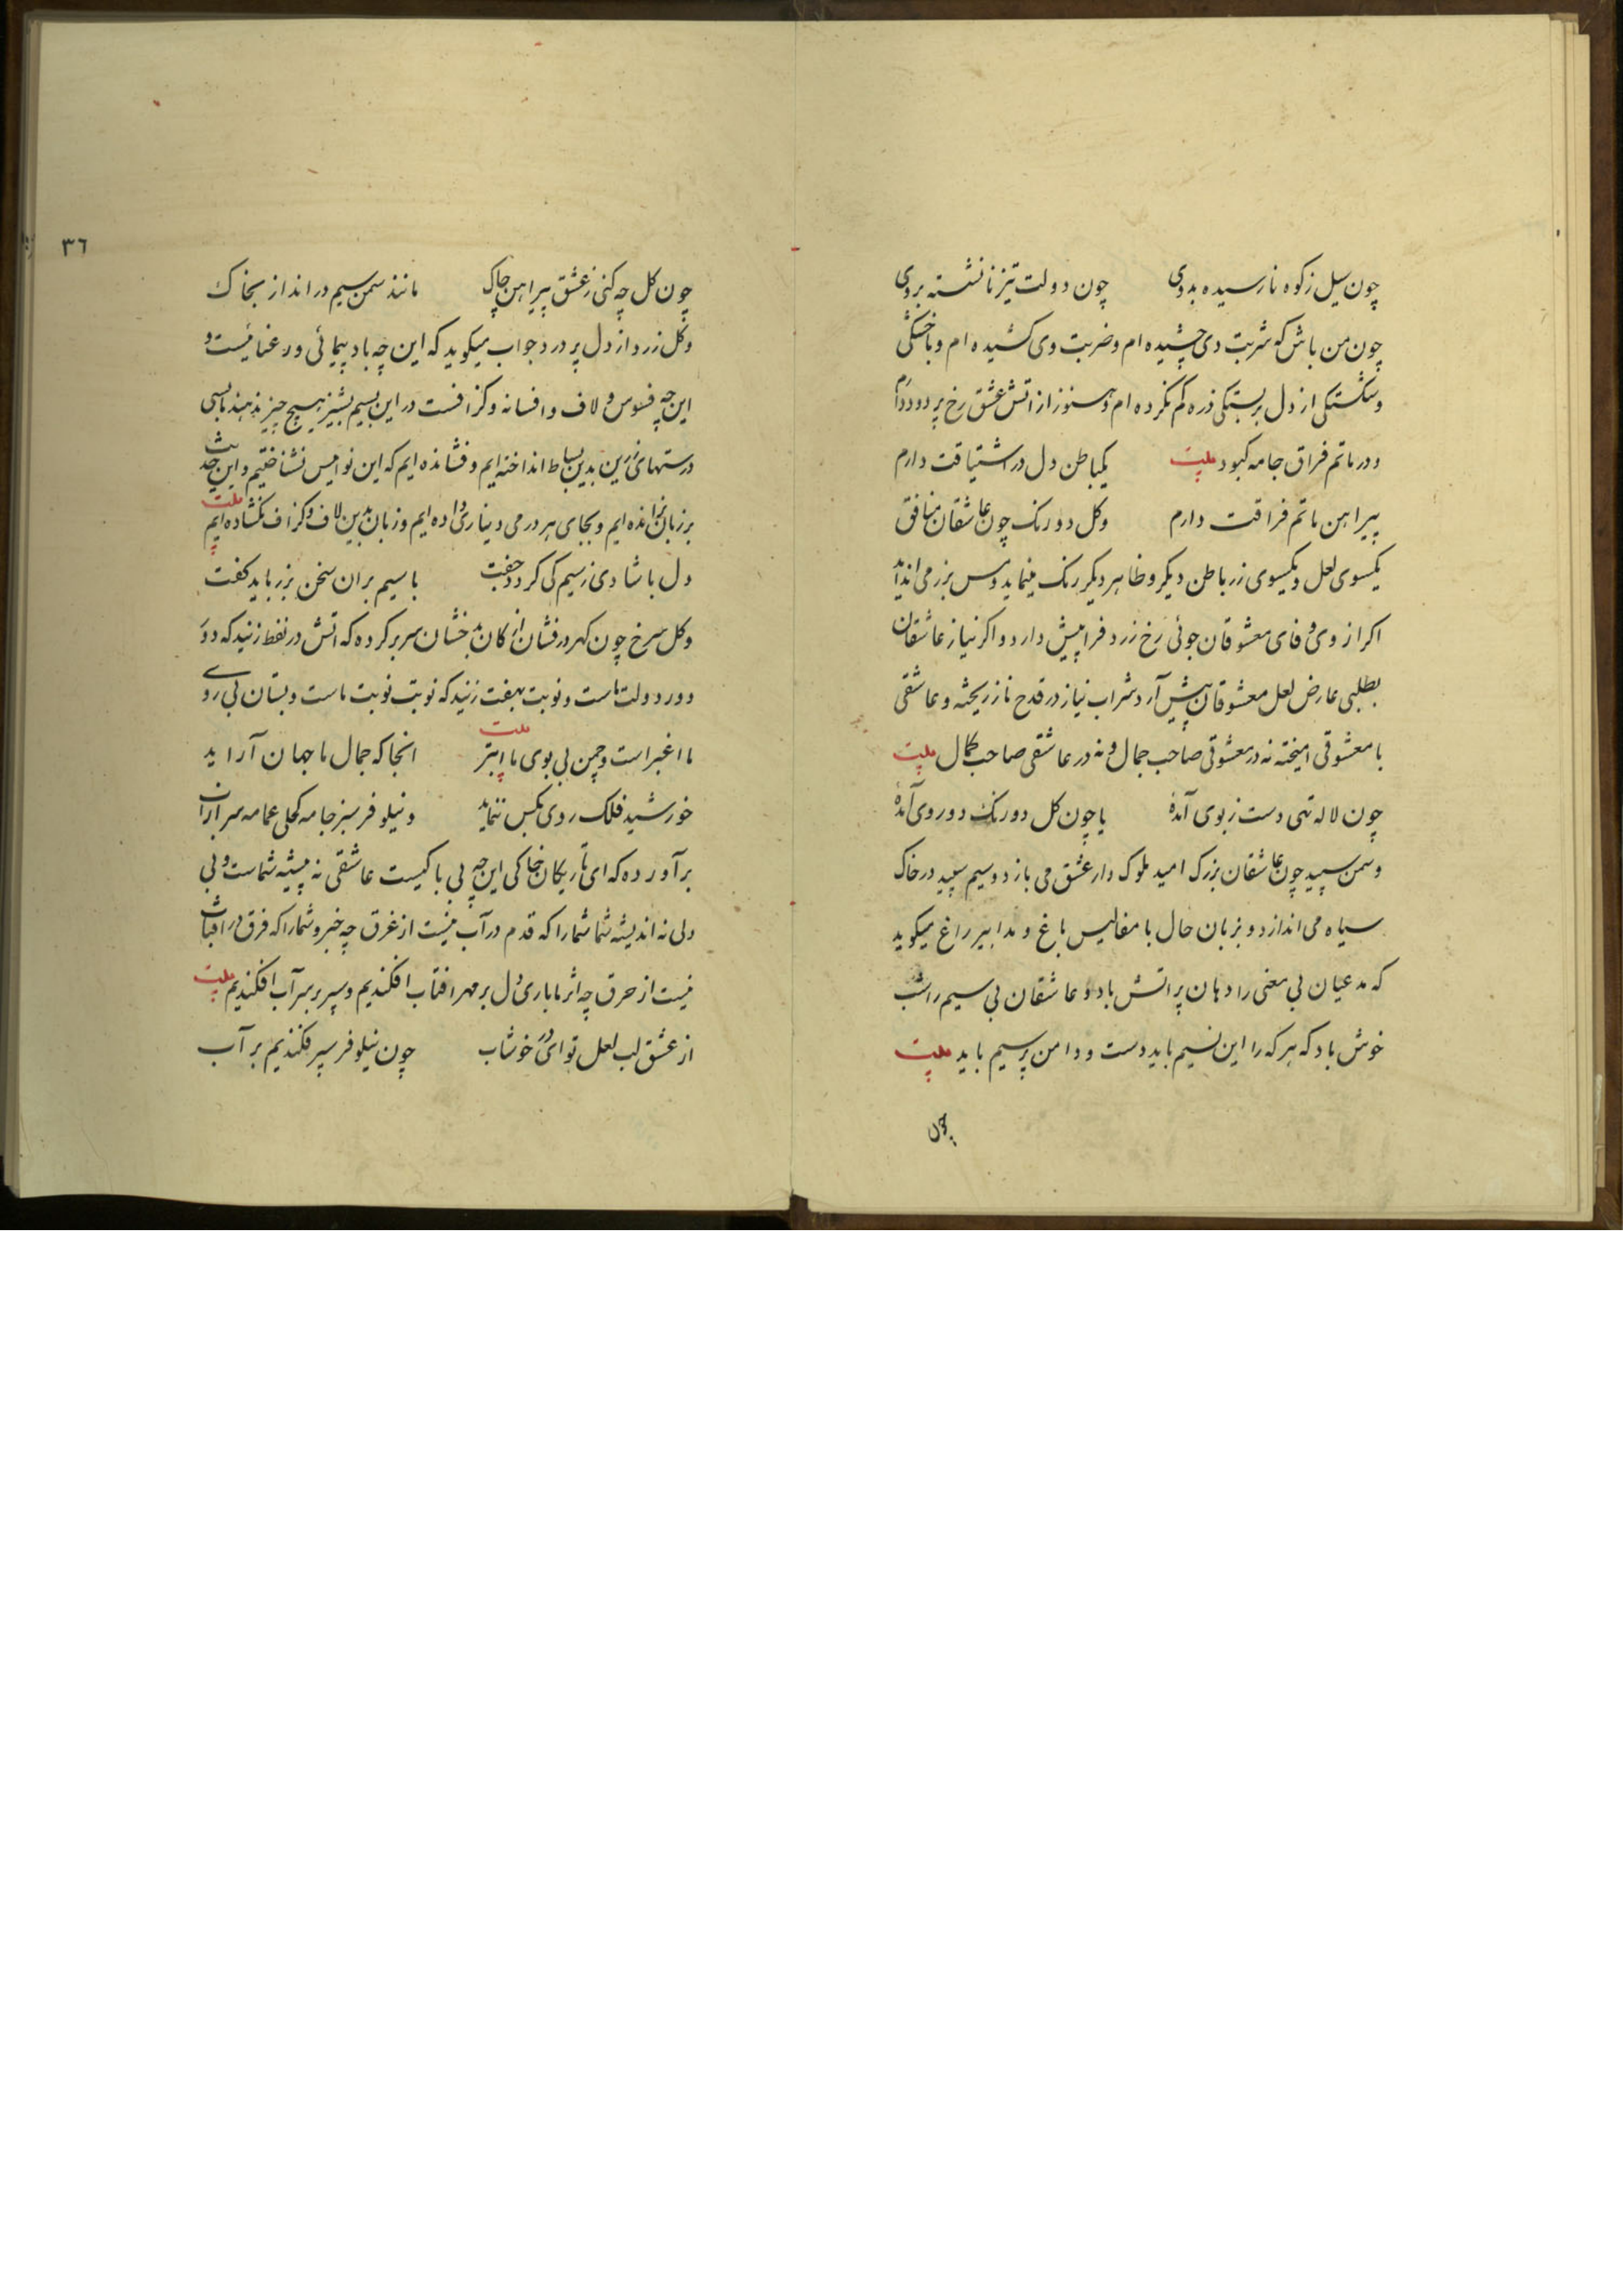 چون سیل ز کوه نارسیده بدوی چون دولت تیز نانشسته بروی
چون من باش که شربت دی چشیده ام و ضربت وی کشیده ام و با خستگی
و شکستگی از دل بر بستگی ذره کم نکرده ام و هنوز از اتش عشق رخ پر دود دارم
و در ماتم فراق جامه کبود بیت یکباطن دل در اشتیاقت دارم
پیراهن ماتم فراقت دارم وکل دو رنک چون عاشقان منافق
یکسوی لعل و یکسوی زر باطن دیکر و ظاهر دیکر رنک مینماید و مس بزر می انداید
اکر از وی وفای معشوقان جوئی رخ زرد فرا پیش دارد و اکر نیاز عاشقان
بطلبی عارض لعل معشوقان پیش آرد شراب نیاز در قدح ناز ریخته و عاشقی
با معشوقی امیخته نه در معشوقی صاحب جمال و نه در عاشقی صاحب کمال بیت
چون لاله تهی دست ز بوی آمدۀ یا چون کل دو رنک دو روی آمدۀ
و سمن سپید چون عاشقان بزرک امید ملوک وار عشق می بازد و سیم سپید در خاک
سیاه می اندازد و بزبان حال با مفالیس باغ و مدابیر راغ میکوید
که مدعیان بی معنی را دهان پر اتش باد و عاشقان بی سیم را شب
خوش باد که هر که را این نسیم باید دست و دامن پر سیم باید بیت
چون
٣٦
چون کل چه کنی ز عشق پیراهن چاک مانند سمن سیم در انداز بخاک
وکل زرد از دل پر درد جواب میکوید که این چه باد پیمائی و رعنائیست و
این چه فسوس و لاف و افسانه و کزافست در این بسیم بشیز هیچ چیز ندهند باسی
درستهای زرین بدین بساط انداخته ایم و فشانده ایم که این نوامیس نشناختیم و این حدیث
بر زبان نرانده ایم و بجای هر درمی دیناری داده ایم و زبان بدین لاف و کزاف نکشاده ایم بیت
دل با شادی ز سیم کی کردد جفت با سیم بران سخن بزر باید کفت
وکل سرخ چون کهر درفشان از کان بدخشان سر بر کرده که اتش در نفط زنید که دور
دور دولت ماست و نوبت بهفت زنید که نوبت نوبت ماست و بستان بی روی
ما اغبر است و چمن بی بوی ما ابتر بیت انجا که جمال ما جهان آراید
خورشید فلک روی بکس ننماید و نیلوفر سبز جامه کحلی عمامه سر از ان
برآورده که ای تاریکان خاکی این چه بی باکیست عاشقی نه پیشه شماست و بی
دلی نه اندیشه شما شما را که قدم در آب نیست از غرق چه خبر و شما را که فرق در افتاب
نیست از حرق چه اثر ما باری دل بر مهر افتاب افکندیم و سپر بر سر آب افکندیم بیت
از عشق لب لعل تو ای در خوشاب چون نیلوفر سپر فکندیم بر آب